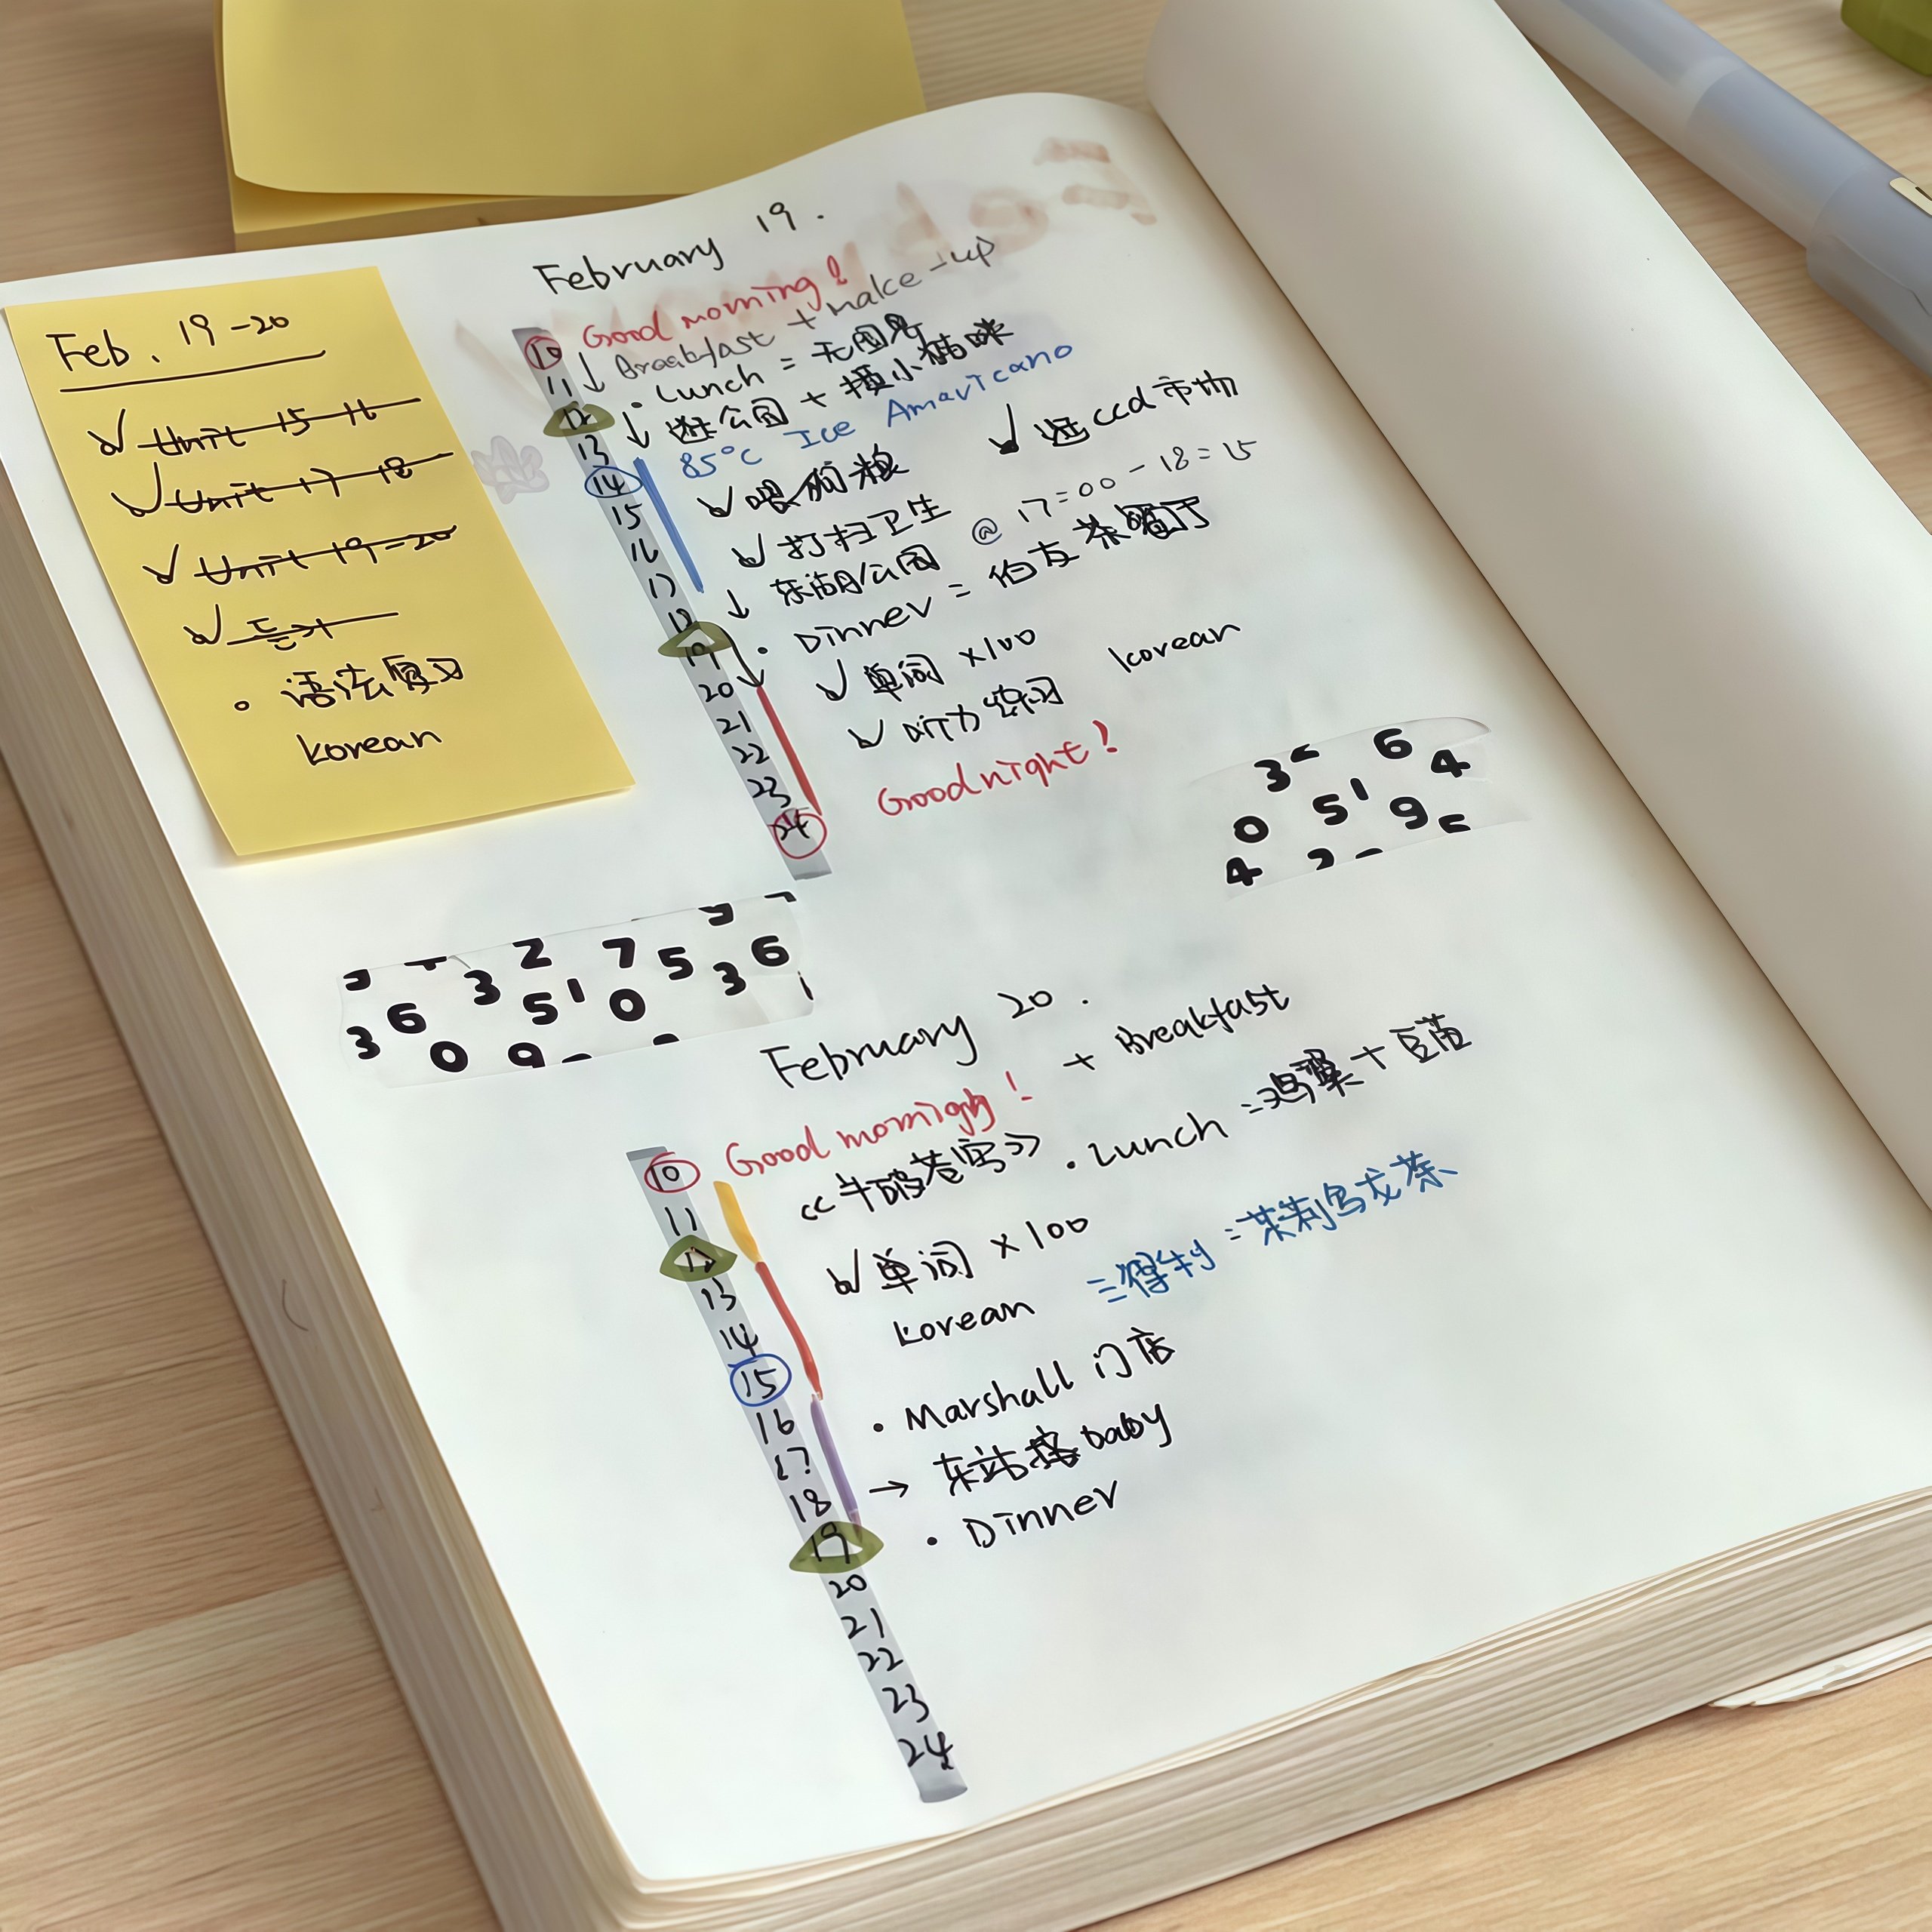 Feb. 19-20
Unit 15-16
Unit 17-18
Unit 19-20
듣기
语法复习
korean
February 19.
Good morning!
Breakfast + make-up
Lunch = 无国界
逛公园 + 摸小猫咪
85°C Ice Amavicano
逛ccd市场
喂狗粮
打扫卫生
东湖公园 @ 17:00-18:15
Dinner = 伯友茶餐厅
单词 ×100
korean
听力练习
Goodnight!
10
11
12
13
14
15
16
17
18
19
20
21
22
23
24
3 6
4
0 5 1 9
4
2 7
3 5 6
3 6 5 1 0 3
0 9
February 20.
Good mornigh! + Breakfast
《牛破苍穹》 . Lunch = 鸡翠 + 豆苗
单词 ×100
korean
三得利 = 茉莉乌龙茶
Marshall 门店
→ 东站接baby
Dinner
10
11
12
13
14
15
16
17
18
19
20
21
22
23
24